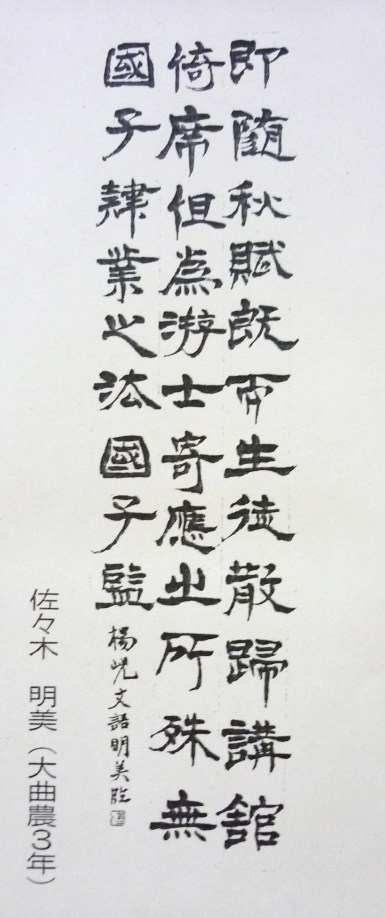 即随秋賦既而生徒散歸講舘
倚席但為游士寄應之所殊無
國子隷業之法國子監
楊峴文語明美臨
佐々木 明美（大曲農3年）